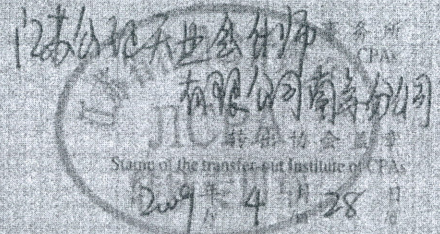 江苏公证天业会计师事务所
CPAs
有限公司南京分公司
JICPA
转出协会盖章
Stamp of the transfer-out Institute of CPAs
2009年 4月 28日